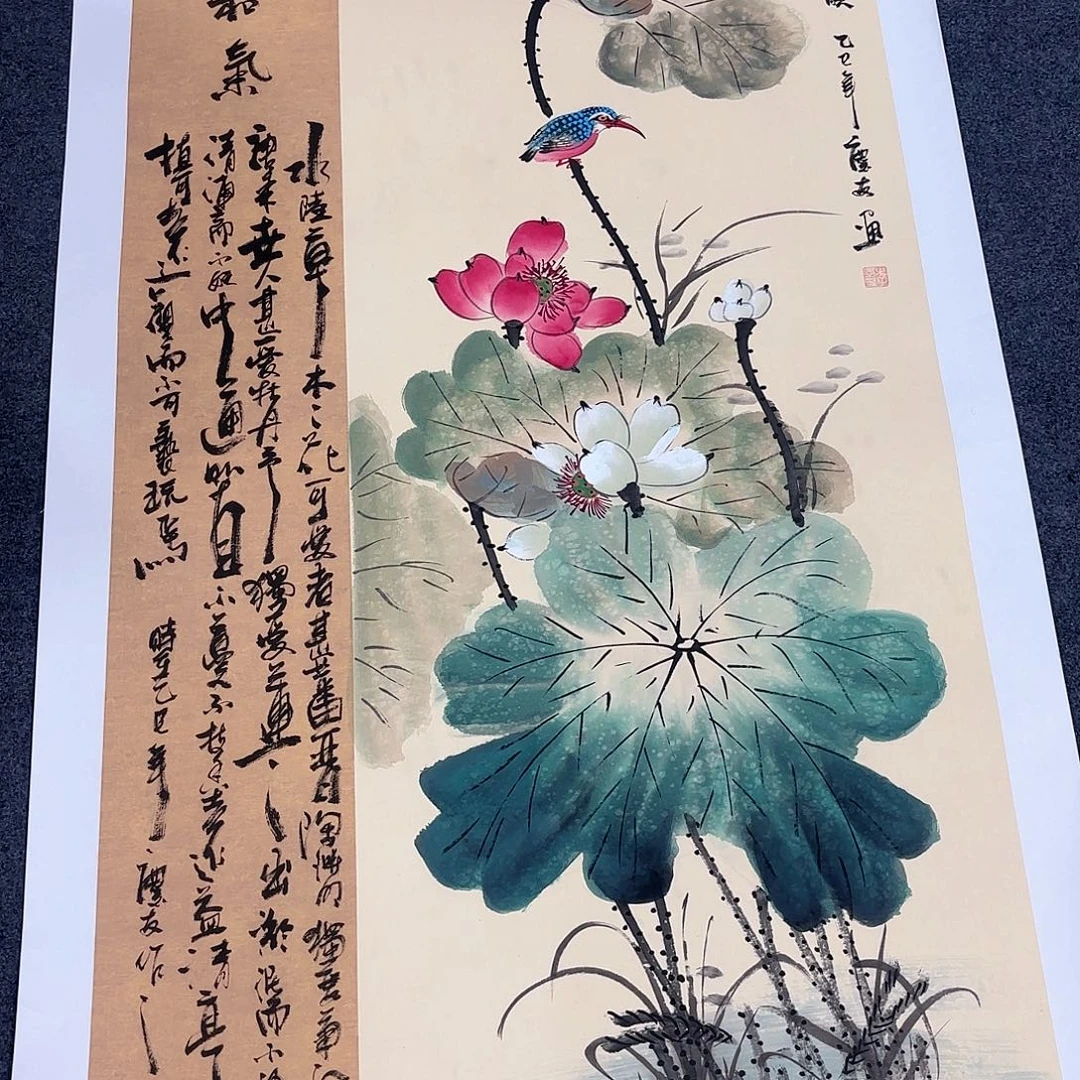 乙巳年 禮友画
氣
水陸草木之花可愛者甚蕃晋陶淵明獨愛菊
来世人甚愛牡丹予獨愛之蓮之出淤泥而不
清漣而不妖中通外直不蔓不枝香遠益清亭
植可遠觀而不可褻玩焉 時在乙巳年 禮友作